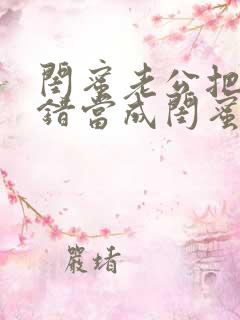 閨蜜老公把
錯當成閨蜜
嚴堵